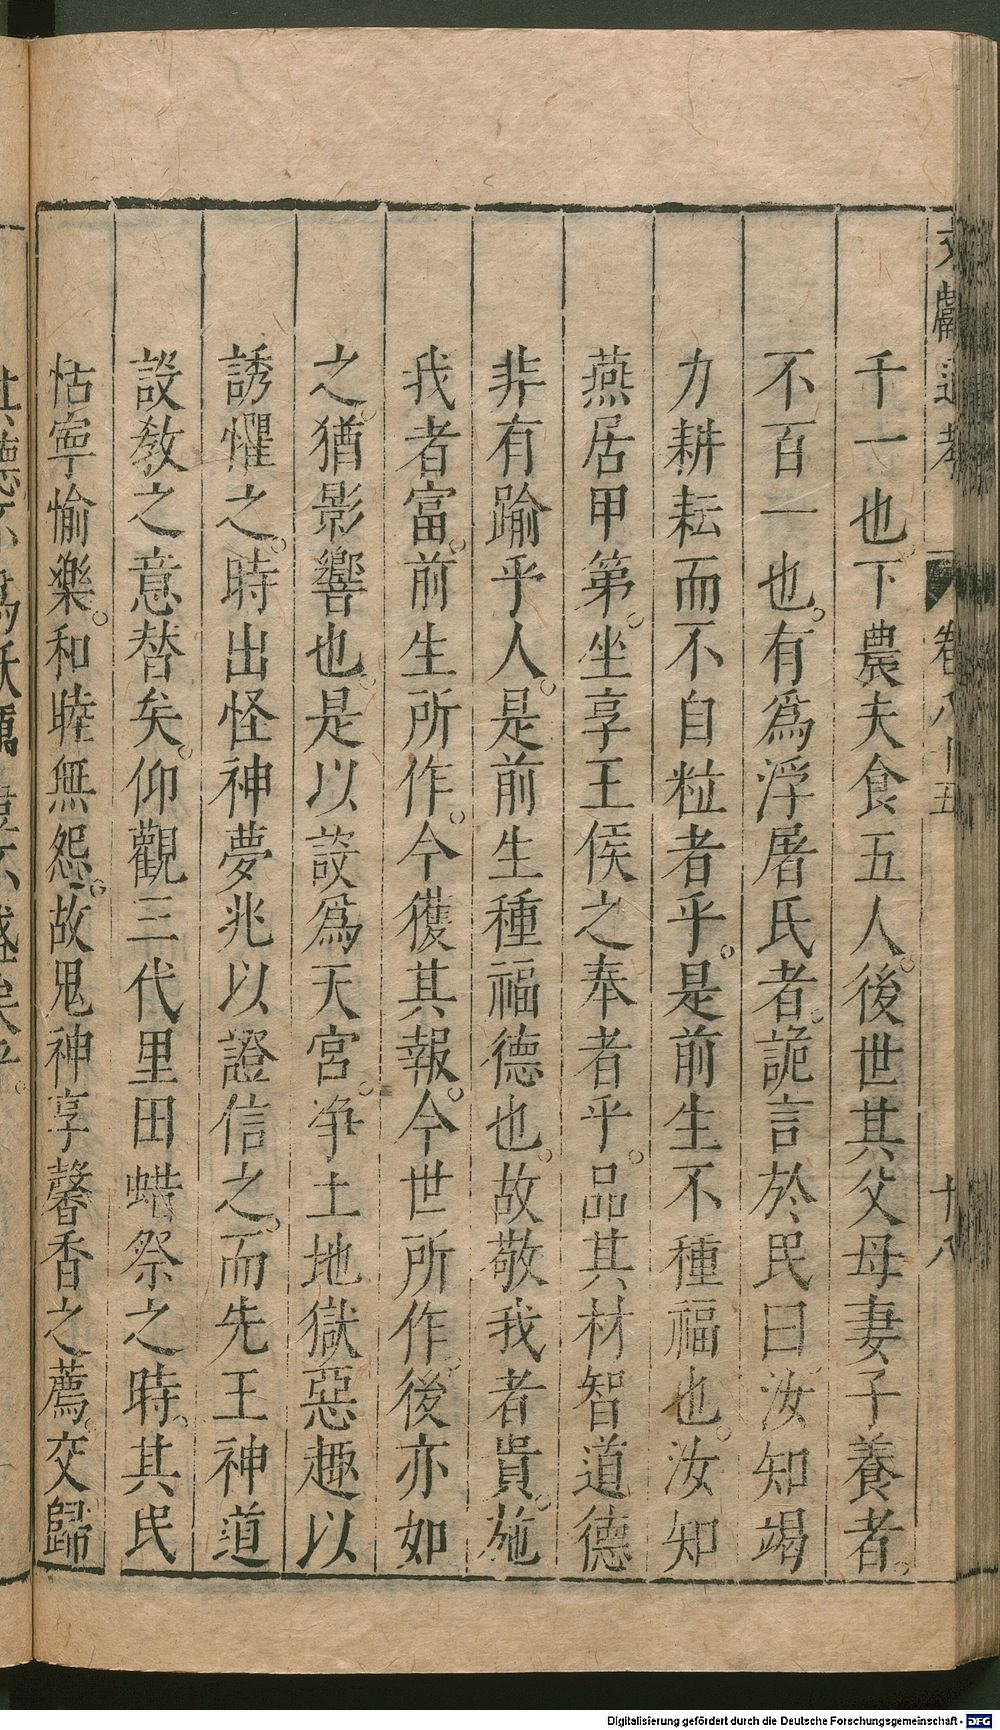 文獻通考 卷八十五 十八
千一也下農夫食五人。後世其父母妻子養者。
不百一也。有爲浮屠氏者。詭言於民曰汝知竭
力耕耘而不自粒者乎。是前生不種福也。汝知
燕居甲第。坐享王侯之奉者乎。品其材智道德
非有踰乎人。是前生種福德也。故敬我者貴。施
我者富。前生所作。今獲其報。今世所作。後亦如
之。猶影響也。是以設爲天宮。净土地獄惡趣以
誘懼之。時出怪神夢兆以證信之。而先王神道
設教之意替矣。仰觀三代里田蜡祭之時。其民
怙寕愉樂。和睦無怨。故鬼神享馨香之薦。交歸